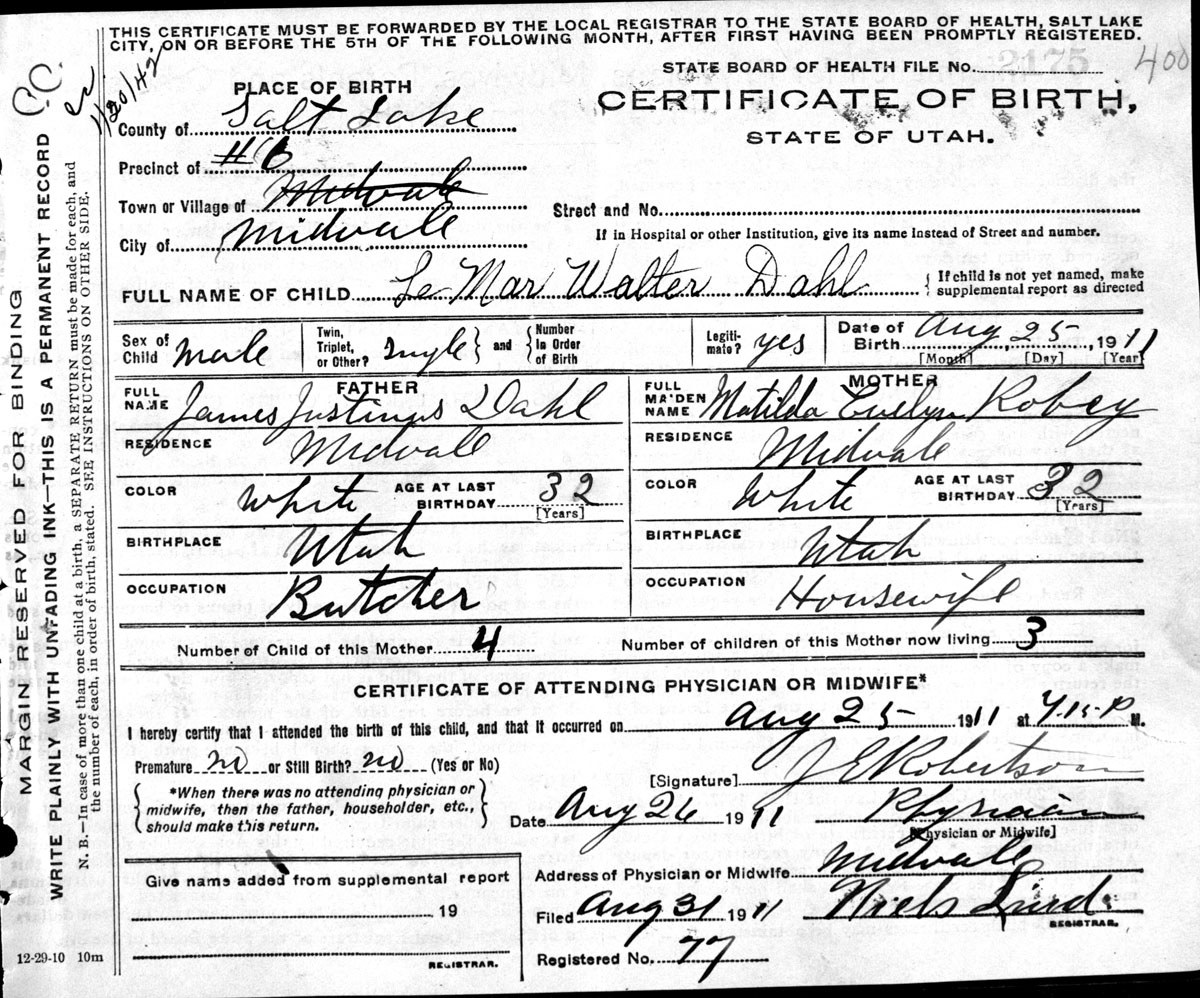 THIS CERTIFICATE MUST BE FORWARDED BY THE LOCAL REGISTRAR TO THE STATE BOARD OF HEALTH, SALT LAKE
CITY, ON OR BEFORE THE 5TH OF THE FOLLOWING MONTH, AFTER FIRST HAVING BEEN PROMPTLY REGISTERED.
STATE BOARD OF HEALTH FILE No. 2175 400
CERTIFICATE OF BIRTH,
STATE OF UTAH.
PLACE OF BIRTH
County of Salt Lake
Precinct of #6
Town or Village of Midvale
City of Midvale
Street and No.
If in Hospital or other Institution, give its name instead of Street and number.
FULL NAME OF CHILD Le Mar Walter Dahl { If child is not yet named, make supplemental report as directed
Sex of Child Male Twin, Triplet, or Other? Single } and { Number In Order of Birth Legitimate? yes Date of Birth Aug 25, 1911
[Month] [Day] [Year]
FATHER
FULL NAME James Justinus Dahl
MOTHER
FULL MAIDEN NAME Matilda Evelyn Robey
RESIDENCE Midvale
RESIDENCE Midvale
COLOR White AGE AT LAST BIRTHDAY 32 [Years]
COLOR White AGE AT LAST BIRTHDAY 32 [Years]
BIRTHPLACE Utah
BIRTHPLACE Utah
OCCUPATION Butcher
OCCUPATION Housewife
Number of Child of this Mother 4 Number of children of this Mother now living 3
CERTIFICATE OF ATTENDING PHYSICIAN OR MIDWIFE*
I hereby certify that I attended the birth of this child, and that it occurred on Aug 25 1911 at 4.15 P M.
Premature no or Still Birth? no (Yes or No)
{ *When there was no attending physician or
midwife, then the father, householder, etc.,
should make this return. }
[Signature] J E Robertson
Date Aug 26 1911 Physician
[Physician or Midwife]
Address of Physician or Midwife Midvale
Filed Aug 31 1911 Niels Lind
REGISTRAR.
Registered No. 77
Give name added from supplemental report
19
REGISTRAR.
12-29-10 10m
MARGIN RESERVED FOR BINDING
WRITE PLAINLY WITH UNFADING INK—THIS IS A PERMANENT RECORD
N. B.—In case of more than one child at a birth, a SEPARATE RETURN must be made for each, and
the number of each, in order of birth, stated. SEE INSTRUCTIONS ON OTHER SIDE.
C.C.
1/20/42